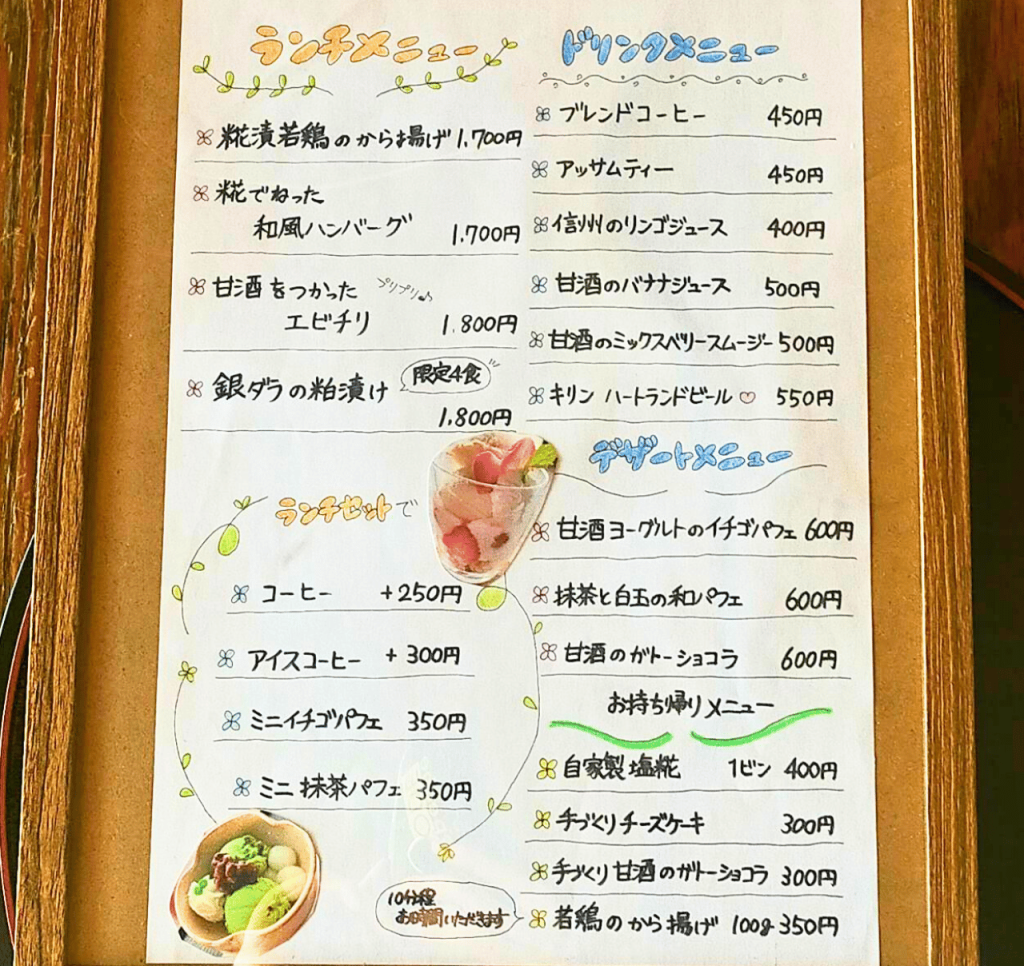 ランチメニュー
糀漬若鶏のから揚げ 1,700円
糀でねった
和風ハンバーグ 1,700円
甘酒をつかった プリプリ♪
エビチリ 1,800円
銀ダラの粕漬け 限定4食
1,800円
ランチセットで
コーヒー +250円
アイスコーヒー +300円
ミニイチゴパフェ 350円
ミニ抹茶パフェ 350円
ドリンクメニュー
ブレンドコーヒー 450円
アッサムティー 450円
信州のリンゴジュース 400円
甘酒のバナナジュース 500円
甘酒のミックスベリースムージー 500円
キリン ハートランドビール♡ 550円
デザートメニュー
甘酒ヨーグルトのイチゴパフェ 600円
抹茶と白玉の和パフェ 600円
甘酒のガトーショコラ 600円
お持ち帰りメニュー
自家製塩糀 1ビン 400円
手づくりチーズケーキ 300円
手づくり甘酒のガトーショコラ 300円
10分程
お時間いただきます
若鶏のから揚げ 100g 350円